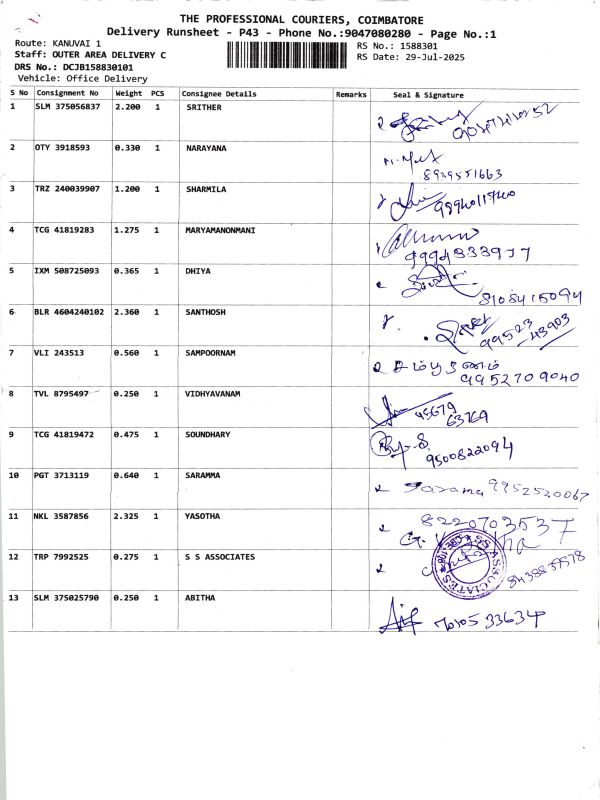 THE PROFESSIONAL COURIERS, COIMBATORE
Delivery Runsheet - P43 - Phone No.:9047080280 - Page No.:1
Route: KANUVAI 1
RS No.: 1588301
Staff: OUTER AREA DELIVERY C
RS Date: 29-Jul-2025
DRS No.: DCJB158830101
Vehicle: Office Delivery
S No Consignment No Weight PCS Consignee Details Remarks Seal & Signature
1 SLM 375056837 2.200 1 SRITHER
2 OTY 3918593 0.330 1 NARAYANA
8939551663
3 TRZ 240039907 1.200 1 SHARMILA
4 TCG 41819283 1.275 1 MARYAMANONMANI
9994333977
5 IXM 508725093 0.365 1 DHIYA
8108415094
6 BLR 4604240102 2.360 1 SANTHOSH
99523
43903
7 VLI 243513 0.560 1 SAMPOORNAM
சம்பூரணம்
9952709040
8 TVL 8795497 0.250 1 VIDHYAVANAM
95679
63769
9 TCG 41819472 0.475 1 SOUNDHARY
9500822094
10 PGT 3713119 0.640 1 SARAMMA
Sarama 9952520067
11 NKL 3587856 2.325 1 YASOTHA
8220703537
12 TRP 7992525 0.275 1 S S ASSOCIATES
13 SLM 375025790 0.250 1 ABITHA
7010533634